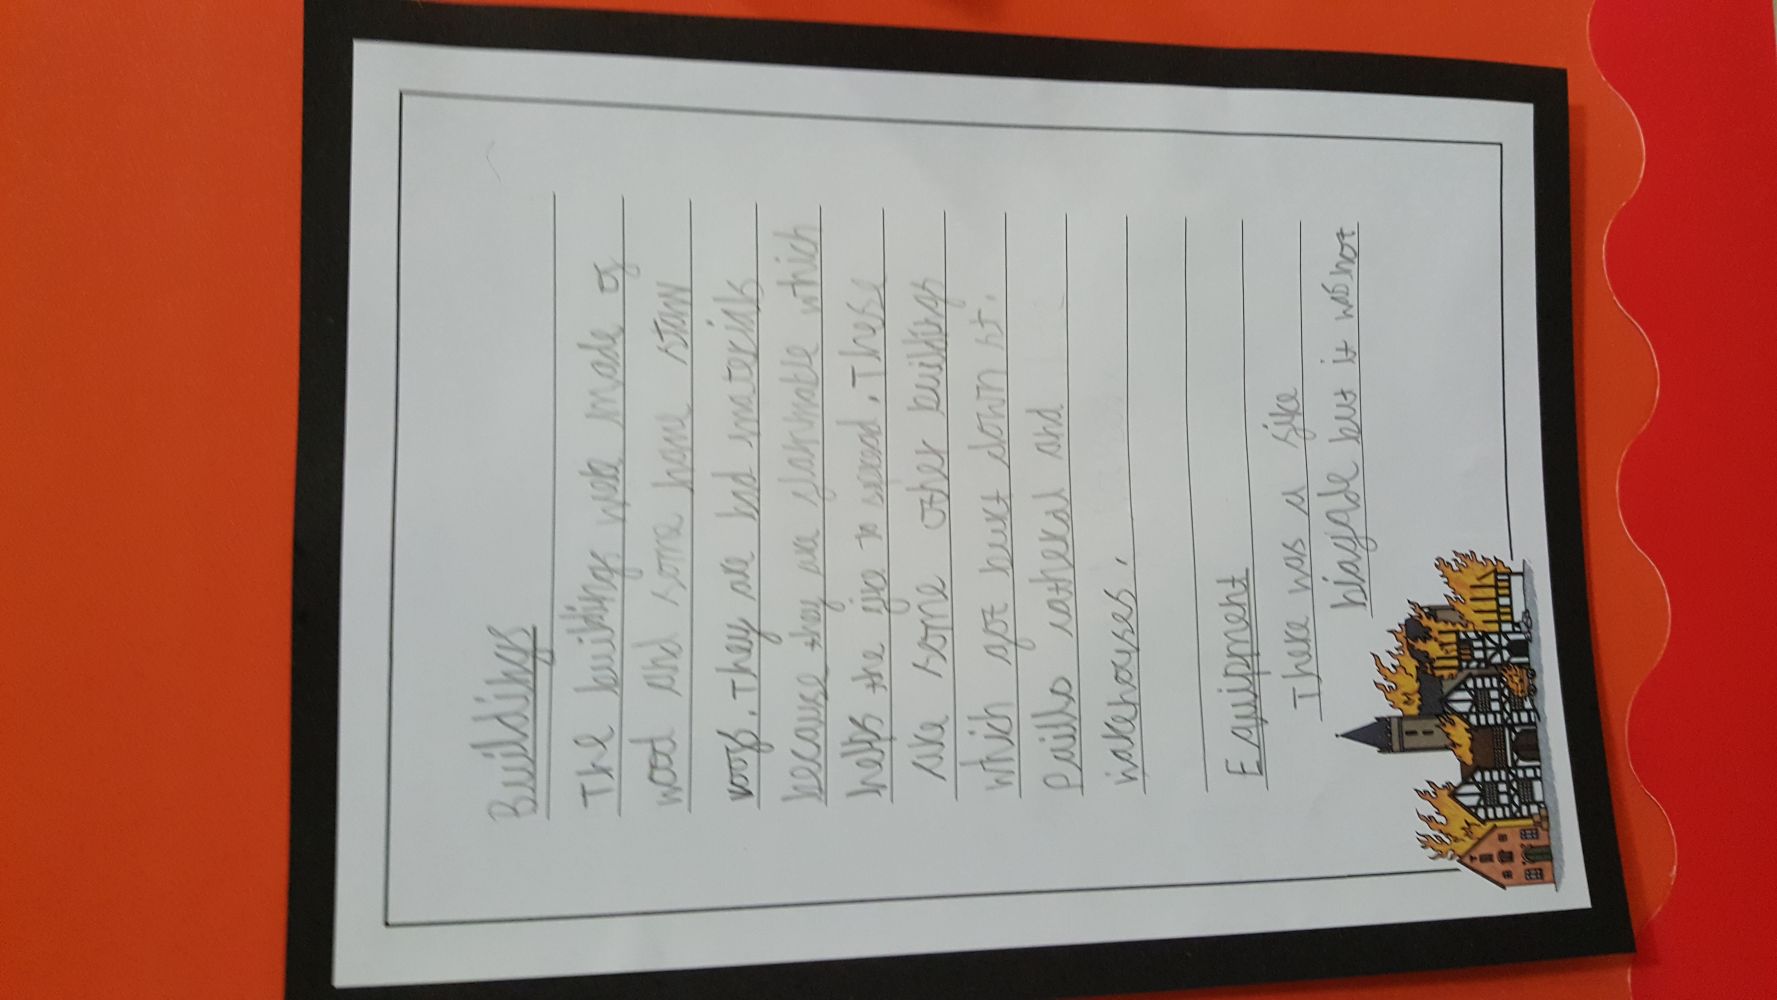 Buildings
The buildings wer made of
wood and some have straw
roofs. They are bad materials
because they are flammable which
helps the fire to spread. These
are some other buildings
which got burt down st.
Paills catheral and
bakehouses.
Equipment
There was a fire
brigade but it was not